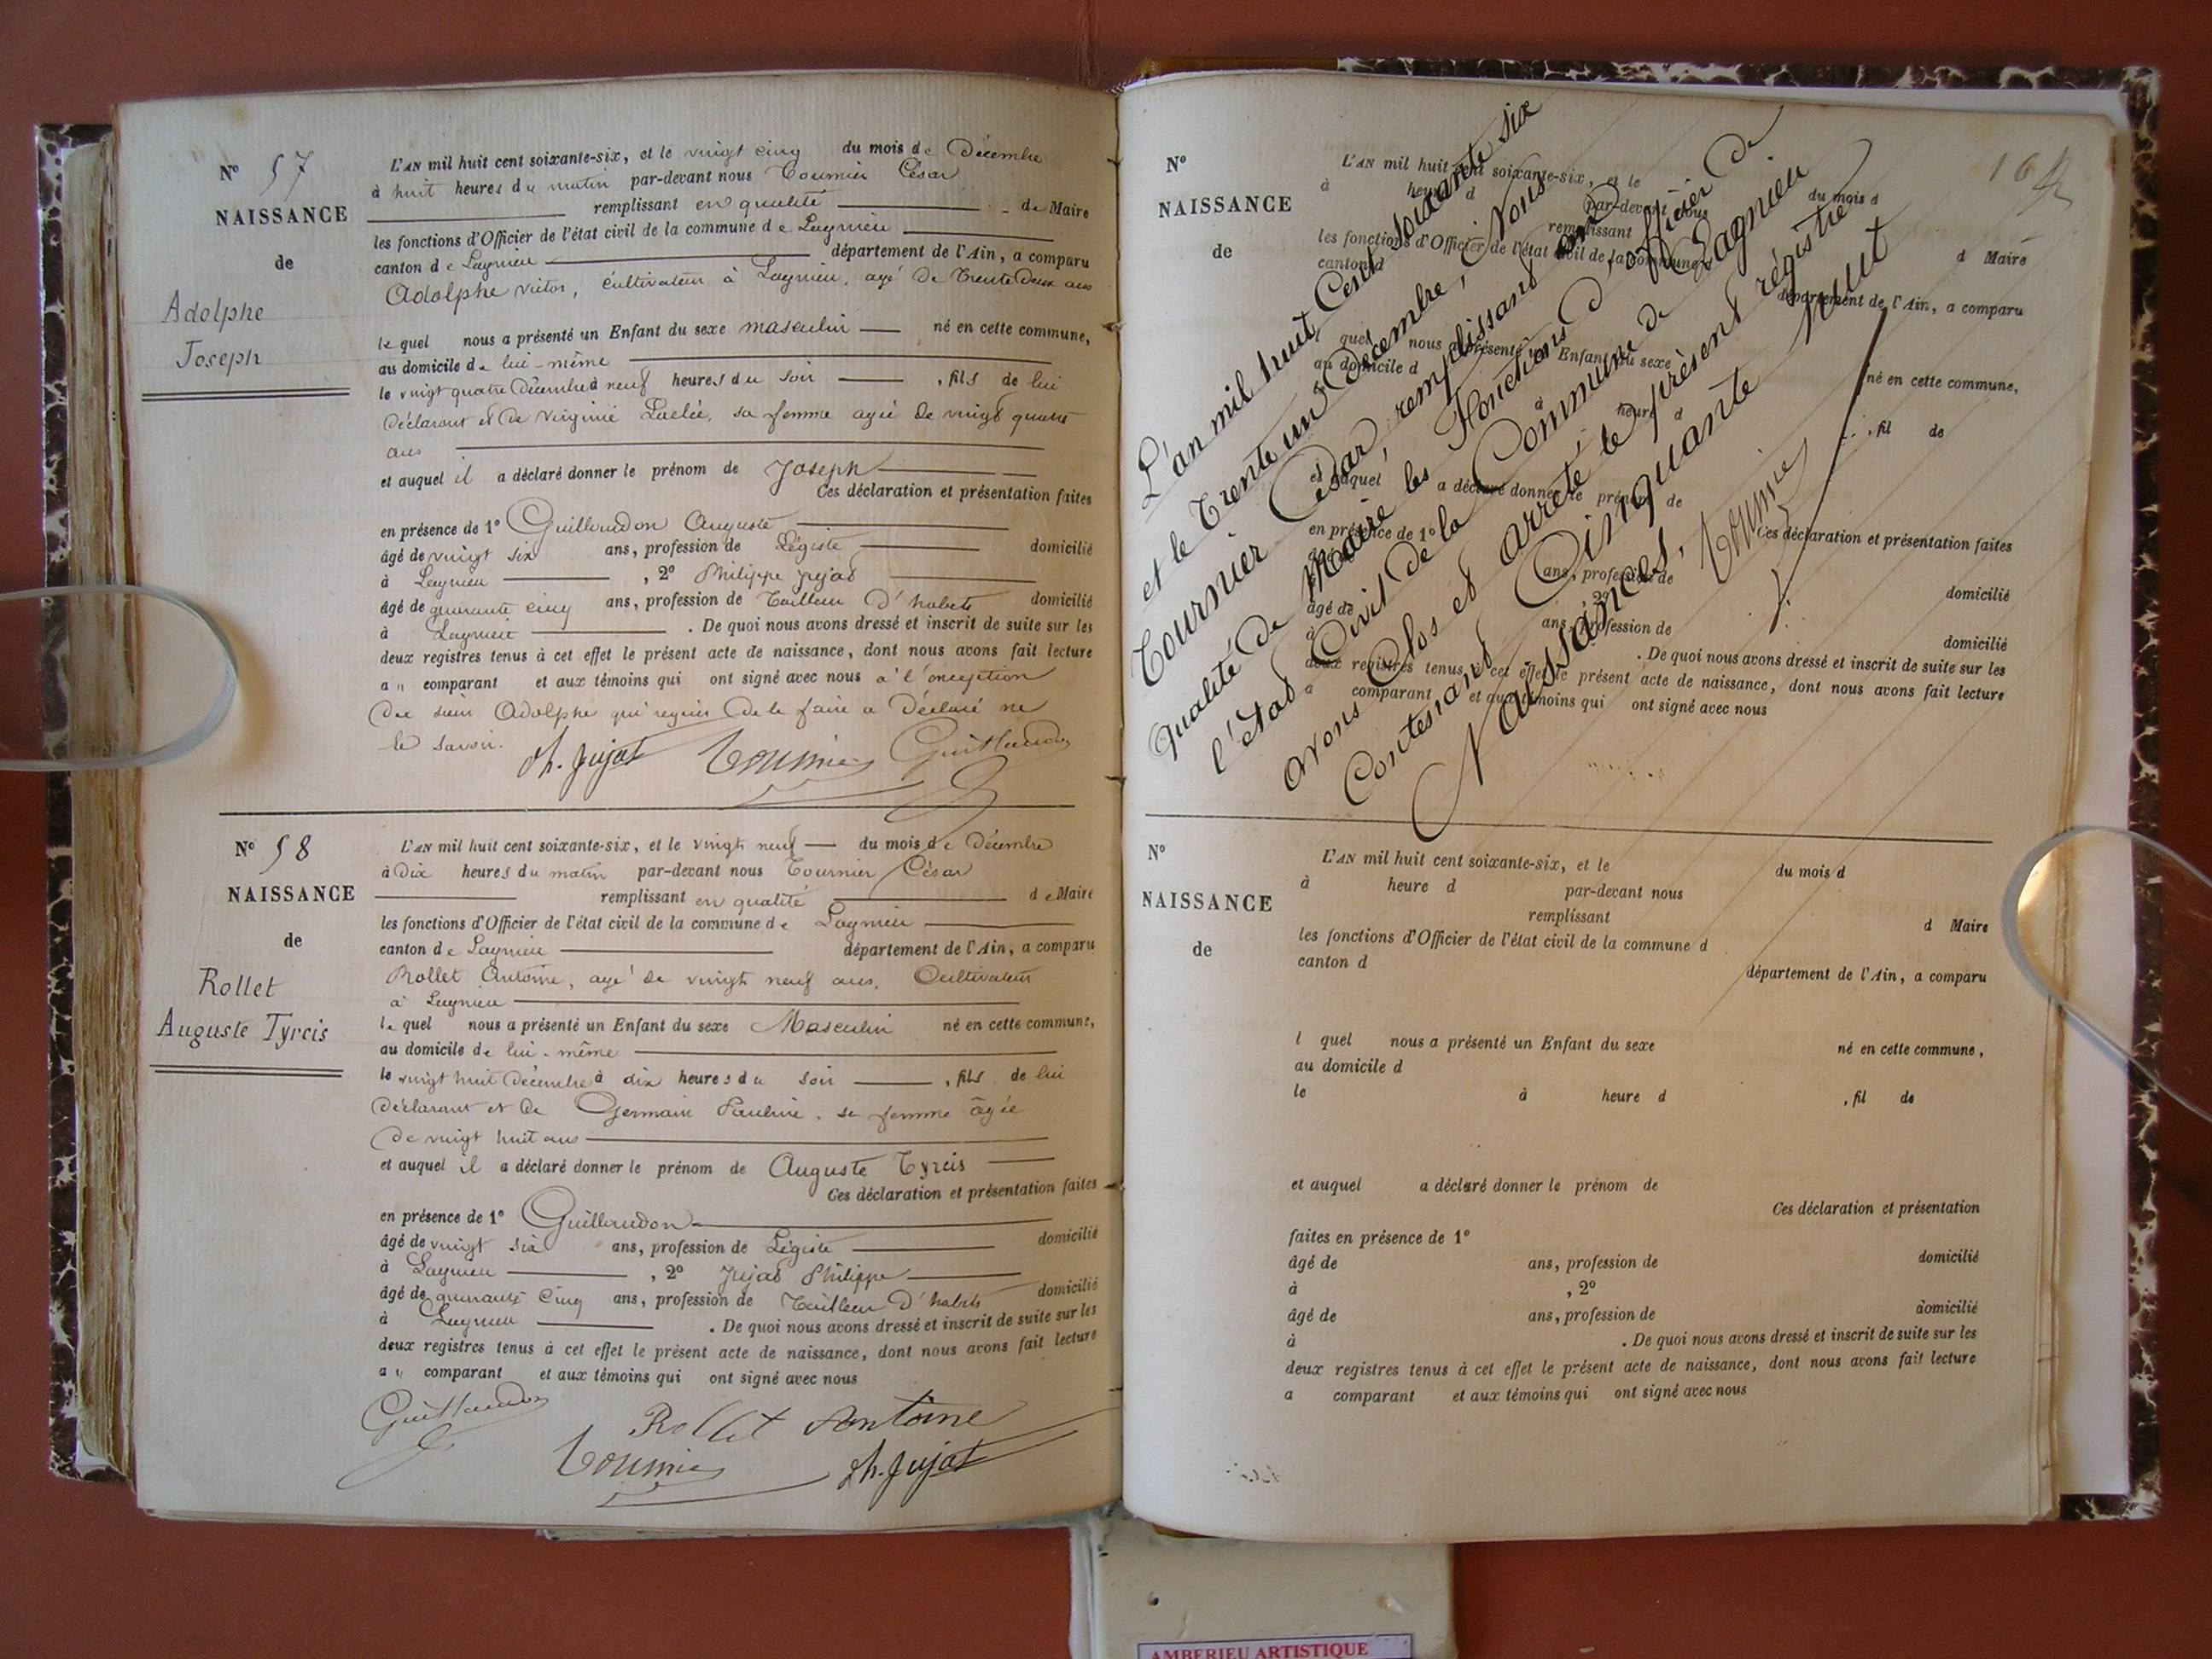 N° 57
NAISSANCE
de
Adolphe
Joseph
L'AN mil huit cent soixante-six, et le vingt cinq du mois de Décembre
à huit heures du matin par-devant nous Tournier César
remplissant en qualité de Maire
les fonctions d'Officier de l'état civil de la commune de Lagnieu
canton de Lagnieu département de l'Ain, a comparu
Adolphe victor, cultivateur à Lagnieu, agé de Trente Deux ans
lequel nous a présenté un Enfant du sexe masculin né en cette commune,
au domicile de lui-même
le vingt quatre Décembre à neuf heures du soir, fils de lui
Déclarant et De Virginie sa femme agée de vingt quatre
ans
et auquel il a déclaré donner le prénom de Joseph
Ces déclaration et présentation faites
en présence de 1° Guillaudon Auguste
âgé de vingt six ans, profession de Légiste domicilié
à Lagnieu, 2° Philippe Jujat
âgé de quarante cinq ans, profession de Tailleur D'habits domicilié
à Lagnieu. De quoi nous avons dressé et inscrit de suite sur les
deux registres tenus à cet effet le présent acte de naissance, dont nous avons fait lecture
au comparant et aux témoins qui ont signé avec nous à l'exception
du sieur Adolphe qui requis De le faire a Déclaré ne
le savoir.
Ph. Jujat Tournier Guillaudon
N° 58
NAISSANCE
de
Rollet
Auguste Tyrcis
L'AN mil huit cent soixante-six, et le vingt neuf du mois de Décembre
à Dix heures du matin par-devant nous Tournier César
remplissant en qualité de Maire
les fonctions d'Officier de l'état civil de la commune de Lagnieu
canton de Lagnieu département de l'Ain, a comparu
Rollet Antoine, agé de vingt neuf ans, Cultivateur
à Lagnieu
lequel nous a présenté un Enfant du sexe Masculin né en cette commune,
au domicile de lui-même
le vingt huit Décembre à dix heures du soir, fils de lui
Déclarant et De Germain Pauline, sa femme âgée
De vingt huit ans
et auquel il a déclaré donner le prénom de Auguste Tyrcis
Ces déclaration et présentation faites
en présence de 1° Guillaudon
âgé de vingt six ans, profession de Légiste domicilié
à Lagnieu, 2° Jujat Philippe
âgé de quarante cinq ans, profession de Tailleur D'habits domicilié
à Lagnieu. De quoi nous avons dressé et inscrit de suite sur les
deux registres tenus à cet effet le présent acte de naissance, dont nous avons fait lecture
au comparant et aux témoins qui ont signé avec nous
Guillaudon
Rollet Antoine
Tournier Ph. Jujat
16
N°
NAISSANCE
de
L'AN mil huit cent soixante-six, et le du mois d
à heure d par-devant nous
remplissant d Maire
les fonctions d'Officier de l'état civil de la commune d
canton d département de l'Ain, a comparu
l quel nous a présenté un Enfant du sexe né en cette commune,
au domicile d
le à heure d, fil de
et auquel a déclaré donner le prénom de
Ces déclaration et présentation faites
en présence de 1°
âgé de ans, profession de domicilié
à, 2°
âgé de ans, profession de domicilié
à. De quoi nous avons dressé et inscrit de suite sur les
deux registres tenus à cet effet le présent acte de naissance, dont nous avons fait lecture
a comparant et aux témoins qui ont signé avec nous
L'an mil huit Cent soixante six
et le Trente un Décembre, Nous
Tournier César, remplissant en
qualité de Maire les Fonctions d'officier de
l'état Civil de la Commune de Lagnieu
avons Clos et arrêté le présent régistre
Contenant Cinquante huit
Naissances.
Tournier
N°
NAISSANCE
de
L'AN mil huit cent soixante-six, et le du mois d
à heure d par-devant nous
remplissant d Maire
les fonctions d'Officier de l'état civil de la commune d
canton d département de l'Ain, a comparu
l quel nous a présenté un Enfant du sexe né en cette commune,
au domicile d
le à heure d, fil de
et auquel a déclaré donner le prénom de
Ces déclaration et présentation
faites en présence de 1°
âgé de ans, profession de domicilié
à, 2°
âgé de ans, profession de domicilié
à. De quoi nous avons dressé et inscrit de suite sur les
deux registres tenus à cet effet le présent acte de naissance, dont nous avons fait lecture
a comparant et aux témoins qui ont signé avec nous
AMBERIEU ARTISTIQUE